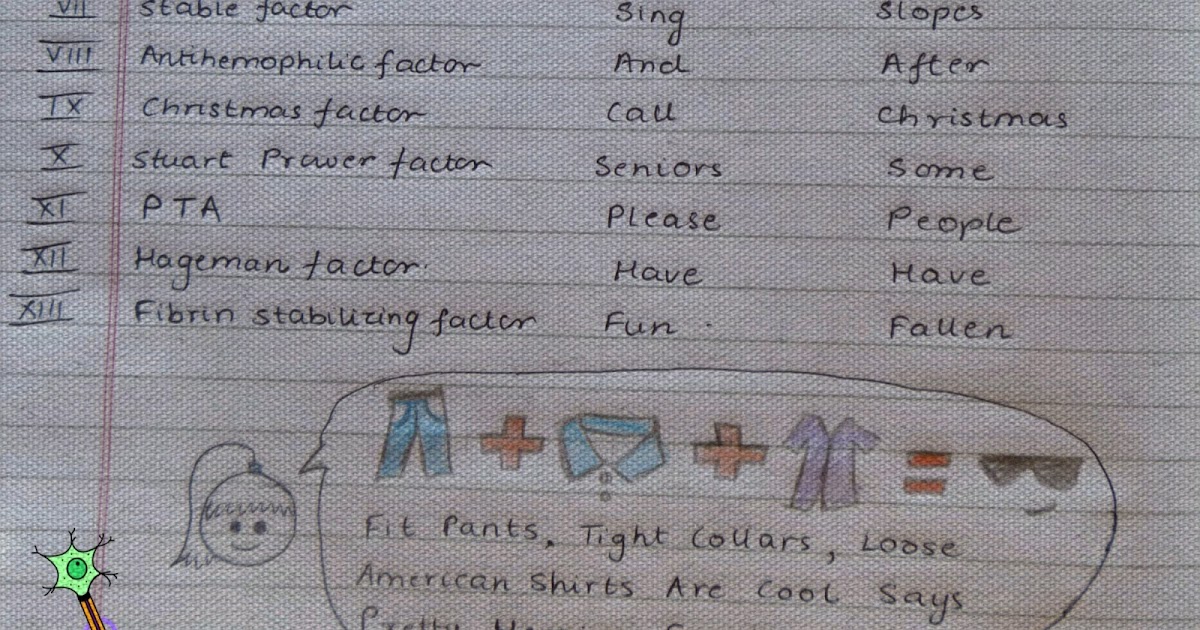 VII stable factor Sing Slopes
VIII Antihemophilic factor And After
IX Christmas factor Call Christmas
X Stuart Prower factor Seniors Some
XI PTA Please People
XII Hageman factor. Have Have
XIII Fibrin stabilizing factor Fun. Fallen
Fit Pants, Tight Collars, Loose
American Shirts Are Cool Says
Pretty